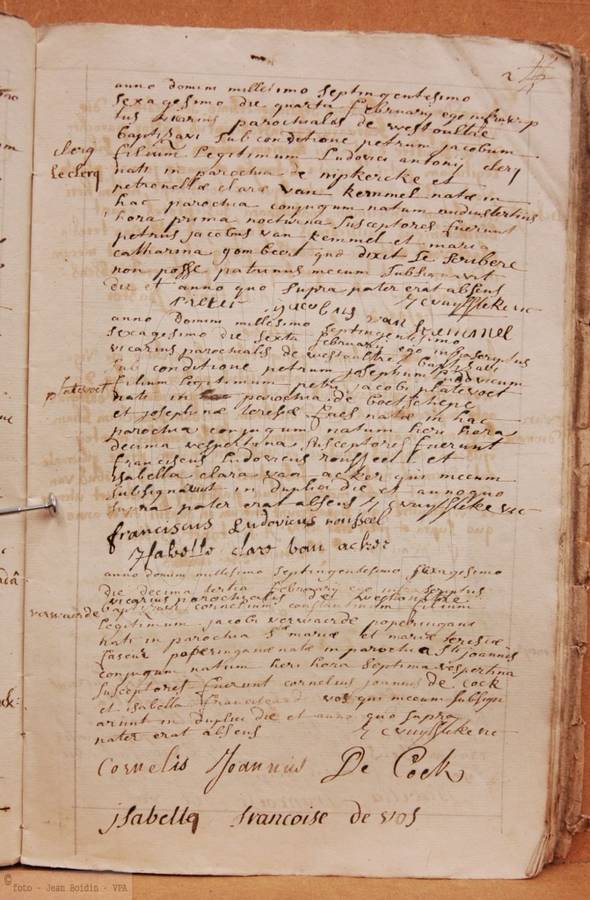 anno domini millesimo septingentesimo
sexagesimo die quarta february ego infrascrip
tus vicarius parochialis de westoultre
baptizavi sub conditione petrum jacobum
clerq
filium legitimum Ludovici antonij clerq
leclerq
nati in parochia de nipkercke et
petronellæ claræ van kemmel natæ in
hac parochia conjugum natum nudiustertius
hora prima nocturna susceptores fuerunt
petrus jacobus van kemmel et maria
catharina gombeert quæ dixit se scribere
non posse patrinus mecum subsignavit
die et anno quo supra pater erat absens
jacobus van kemmel
anno Domini millesimo septingentesimo
sexagesimo die sexta february ego infrascriptus
vicarius parochialis de westoultre baptizavi
sub conditione petrum josephum ludovicum
platevoet
filium legitimum petri jacobi platevoet
nati in parochia de boeschepe
et josephinæ teresiæ natæ in hac
parochia conjugum natum heri hora
decima vespertina susceptores fuerunt
franciscus ludovicus roussel et
isabella clara van acker qui mecum
subsignarunt in duplici die et anno quo
supra pater erat absens
franciscus Ludovicus roussel
Isabelle clare van acker
anno domini millesimo septingentesimo sexagesimo
die decima tertia february ego infrascriptus
vicarius parochialis de westoultre
verwaerde
baptizavi cornelium constantinum filium
legitimum jacobi verwaerde poperingani
nati in parochia Stæ mariæ et mariæ teresiæ
poperinganæ natæ in parochia Sti joannis
conjugum natum heri hora septima vespertina
susceptores fuerunt cornelius joannes de cock
et isabella vos qui mecum subsign
arunt in duplici die et anno quo supra
pater erat absens
Cornelis Joannis De Cock
jsabella francoise de vos
© foto - Jean Boidin - VPA